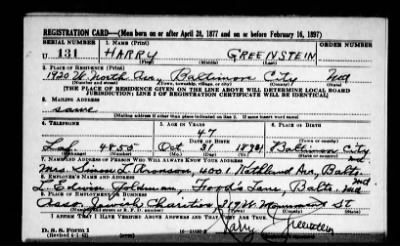 REGISTRATION CARD—(Men born on or after April 28, 1877 and on or before February 16, 1897)
SERIAL NUMBER 1. NAME (Print)
U 131 HARRY GREENSTEIN
2. PLACE OF RESIDENCE (Print)
1920 W. North Ave, Baltimore City Md
(Town, township, village, or city) (County) (State)
[THE PLACE OF RESIDENCE GIVEN ON THE LINE ABOVE WILL DETERMINE LOCAL BOARD
JURISDICTION; LINE 2 OF REGISTRATION CERTIFICATE WILL BE IDENTICAL]
3. MAILING ADDRESS
same
[Mailing address if other than place indicated on line 2. If same insert word same]
4. TELEPHONE 5. AGE IN YEARS 6. PLACE OF BIRTH
47
DATE OF BIRTH Baltimore City
Laf. 4855 Oct 31 Md
7. NAME AND ADDRESS OF PERSON WHO WILL ALWAYS KNOW YOUR ADDRESS
Mrs. Simon L. Aronson, 4001 Ave, Balto. Md
8. EMPLOYER'S NAME AND ADDRESS
L. Edwin Goldman, Lane, Balto. Md
9. PLACE OF EMPLOYMENT OR BUSINESS
Asso. Jewish Charities 319 W. Monument St
I AFFIRM THAT I HAVE VERIFIED ABOVE ANSWERS AND THAT THEY ARE TRUE.
D. S. S. Form 1 Harry Greenstein
(Revised 4-1-42)